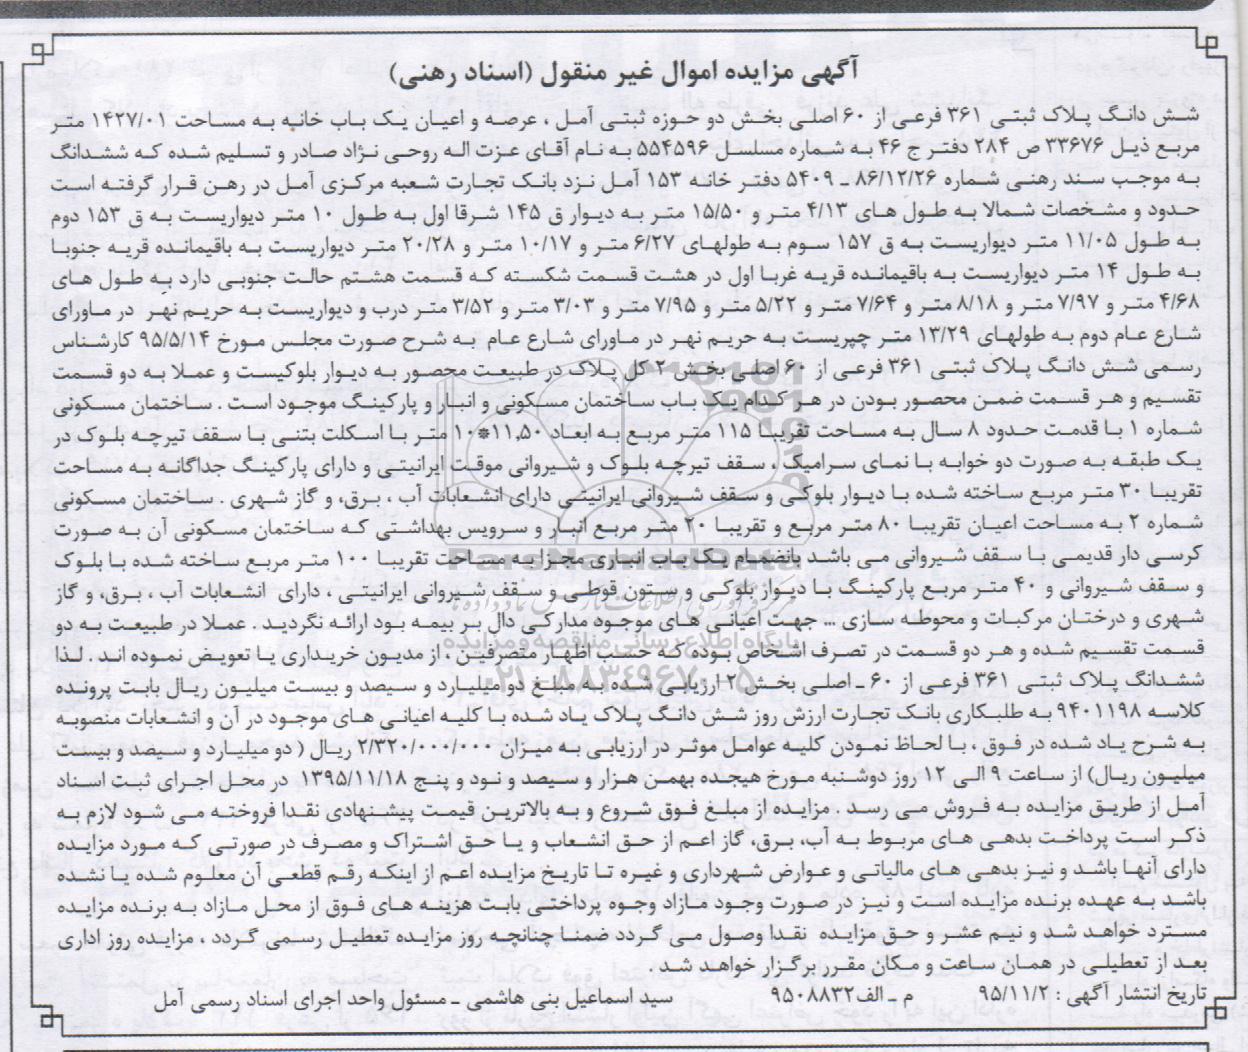 آگهی مزایده اموال غیر منقول (اسناد رهنی)
شش دانگ پلاک ثبتی ۳۶۱ فرعی از ۶۰ اصلی بخش دو حوزه ثبتی آمل ، عرصه و اعیان یک باب خانه به مساحت ۱۴۲۷/۰۱ متر
مربع ذیل ۳۳۶۷۶ ص ۲۸۴ دفتر ج ۴۶ به شماره مسلسل ۵۵۴۵۹۶ به نام آقای عزت اله روحی نژاد صادر و تسلیم شده که ششدانگ
به موجب سند رهنی شماره ۸۶/۱۲/۲۶ ـ ۵۴۰۹ دفتر خانه ۱۵۳ آمل نزد بانک تجارت شعبه مرکزی آمل در رهن قرار گرفته است
حدود و مشخصات شمالا به طول های ۴/۱۳ متر و ۱۵/۵۰ متر به دیوار ق ۱۴۵ شرقا اول به طول ۱۰ متر دیواریست به ق ۱۵۳ دوم
به طول ۱۱/۰۵ متر دیواریست به ق ۱۵۷ سوم به طولهای ۶/۲۷ متر و ۱۰/۱۷ متر و ۲۰/۲۸ متر دیواریست به باقیمانده قریه جنوبا
به طول ۱۴ متر دیواریست به باقیمانده قریه غربا اول در هشت قسمت شکسته که قسمت هشتم حالت جنوبی دارد به طول های
۴/۶۸ متر و ۷/۹۷ متر و ۸/۱۸ متر و ۷/۶۴ متر و ۵/۲۲ متر و ۷/۹۵ متر و ۳/۰۳ متر و ۳/۵۲ متر درب و دیواریست به حریم نهر در ماورای
شارع عام دوم به طولهای ۱۳/۲۹ متر چپریست به حریم نهر در ماورای شارع عام به شرح صورت مجلس مورخ ۹۵/۵/۱۴ کارشناس
رسمی شش دانگ پلاک ثبتی ۳۶۱ فرعی از ۶۰ اصلی بخش ۲ کل پلاک در طبیعت محصور به دیوار بلوکیست و عملا به دو قسمت
تقسیم و هر قسمت ضمن محصور بودن در هر کدام یک باب ساختمان مسکونی و انبار و پارکینگ موجود است . ساختمان مسکونی
شماره ۱ با قدمت حدود ۸ سال به مساحت تقریبا ۱۱۵ متر مربع به ابعاد ۱۱٫۵۰*۱۰ متر با اسکلت بتنی با سقف تیرچه بلوک در
یک طبقه به صورت دو خوابه با نمای سرامیک ، سقف تیرچه بلوک و شیروانی موقت ایرانیتی و دارای پارکینگ جداگانه به مساحت
تقریبا ۳۰ متر مربع ساخته شده با دیوار بلوکی و سقف شیروانی ایرانیتی دارای انشعابات آب ، برق، و گاز شهری . ساختمان مسکونی
شماره ۲ به مساحت اعیان تقریبا ۸۰ متر مربع و تقریبا ۲۰ متر مربع انبار و سرویس بهداشتی که ساختمان مسکونی آن به صورت
کرسی دار قدیمی با سقف شیروانی می باشد بانضمام یک باب انباری مجزا به مساحت تقریبا ۱۰۰ متر مربع ساخته شده با بلوک
و سقف شیروانی و ۴۰ متر مربع پارکینگ با دیوار بلوکی و ستون قوطی و سقف شیروانی ایرانیتی ، دارای انشعابات آب ، برق، و گاز
شهری و درختان مرکبات و محوطه سازی ... جهت اعیانی های موجود مدارکی دال بر بیمه بود ارائه نگردید . عملا در طبیعت به دو
قسمت تقسیم شده و هر دو قسمت در تصرف اشخاص بوده که حسب اظهار متصرفین ، از مدیون خریداری یا تعویض نموده اند . لذا
ششدانگ پلاک ثبتی ۳۶۱ فرعی از ۶۰ ـ اصلی بخش ۲ ارزیابی شده به مبلغ دو میلیارد و سیصد و بیست میلیون ریال بابت پرونده
کلاسه ۹۴۰۱۱۹۸ به طلبکاری بانک تجارت ارزش روز شش دانگ پلاک یاد شده با کلیه اعیانی های موجود در آن و انشعابات منصوبه
به شرح یاد شده در فوق ، با لحاظ نمودن کلیه عوامل موثر در ارزیابی به میزان ۲/۳۲۰/۰۰۰/۰۰۰ ریال ( دو میلیارد و سیصد و بیست
میلیون ریال) از ساعت ۹ الی ۱۲ روز دوشنبه مورخ هیجده بهمن هزار و سیصد و نود و پنج ۱۳۹۵/۱۱/۱۸ در محل اجرای ثبت اسناد
آمل از طریق مزایده به فروش می رسد . مزایده از مبلغ فوق شروع و به بالاترین قیمت پیشنهادی نقدا فروخته می شود لازم به
ذکر است پرداخت بدهی های مربوط به آب، برق، گاز اعم از حق انشعاب و یا حق اشتراک و مصرف در صورتی که مورد مزایده
دارای آنها باشد و نیز بدهی های مالیاتی و عوارض شهرداری و غیره تا تاریخ مزایده اعم از اینکه رقم قطعی آن معلوم شده یا نشده
باشد به عهده برنده مزایده است و نیز در صورت وجود مازاد وجوه پرداختی بابت هزینه های فوق از محل مازاد به برنده مزایده
مسترد خواهد شد و نیم عشر و حق مزایده نقدا وصول می گردد ضمنا چنانچه روز مزایده تعطیل رسمی گردد ، مزایده روز اداری
بعد از تعطیلی در همان ساعت و مکان مقرر برگزار خواهد شد .
تاریخ انتشار آگهی : ۹۵/۱۱/۲ م ـ الف ۹۵۰۸۸۳۲ سید اسماعیل بنی هاشمی ـ مسئول واحد اجرای اسناد رسمی آمل
ParsNamadData
پایگاه اطلاع رسانی مناقصه و مزایده
۰۲۱-۸۸۳۴۹۶۷۰-۵